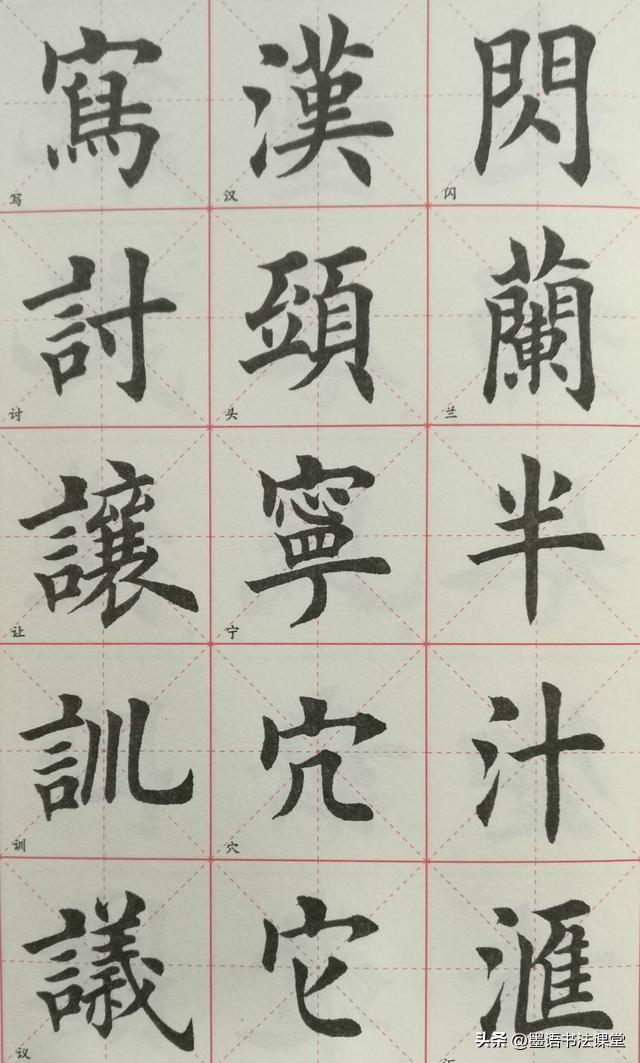 閃 闪
蘭 兰
半
汁
滙
漢 汉
頭 头
寧 宁
穴 穴
它
寫 写
討 讨
讓 让
訓 训
議 议
头条 @墨语书法课堂